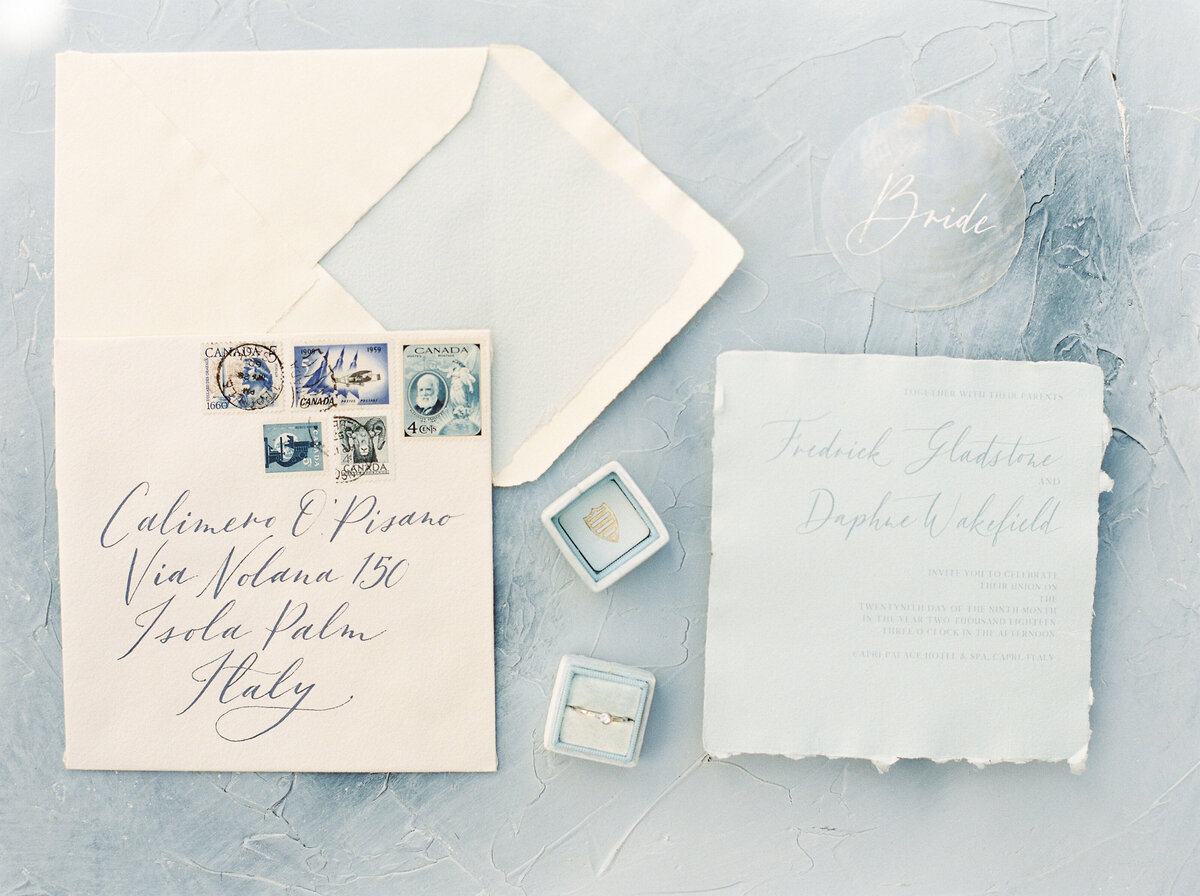 CANADA 5
1660
1909 1959
CANADA POSTES POSTAGE
CANADA
POSTES POSTAGE
4 CENTS
CANADA
5
4
CANADA
Calimero O'Pisano
Via Nolana 150
Isola Palm
Italy
Bride
TOGETHER WITH THEIR PARENTS
Fredrick Gladstone
AND
Daphne Wakefield
INVITE YOU TO CELEBRATE
THEIR UNION ON
THE
TWENTYNITH DAY OF THE NINTH MONTH
IN THE YEAR TWO THOUSAND EIGHTEEN
THREE O'CLOCK IN THE AFTERNOON
CAPRI PALACE HOTEL & SPA, CAPRI, ITALY